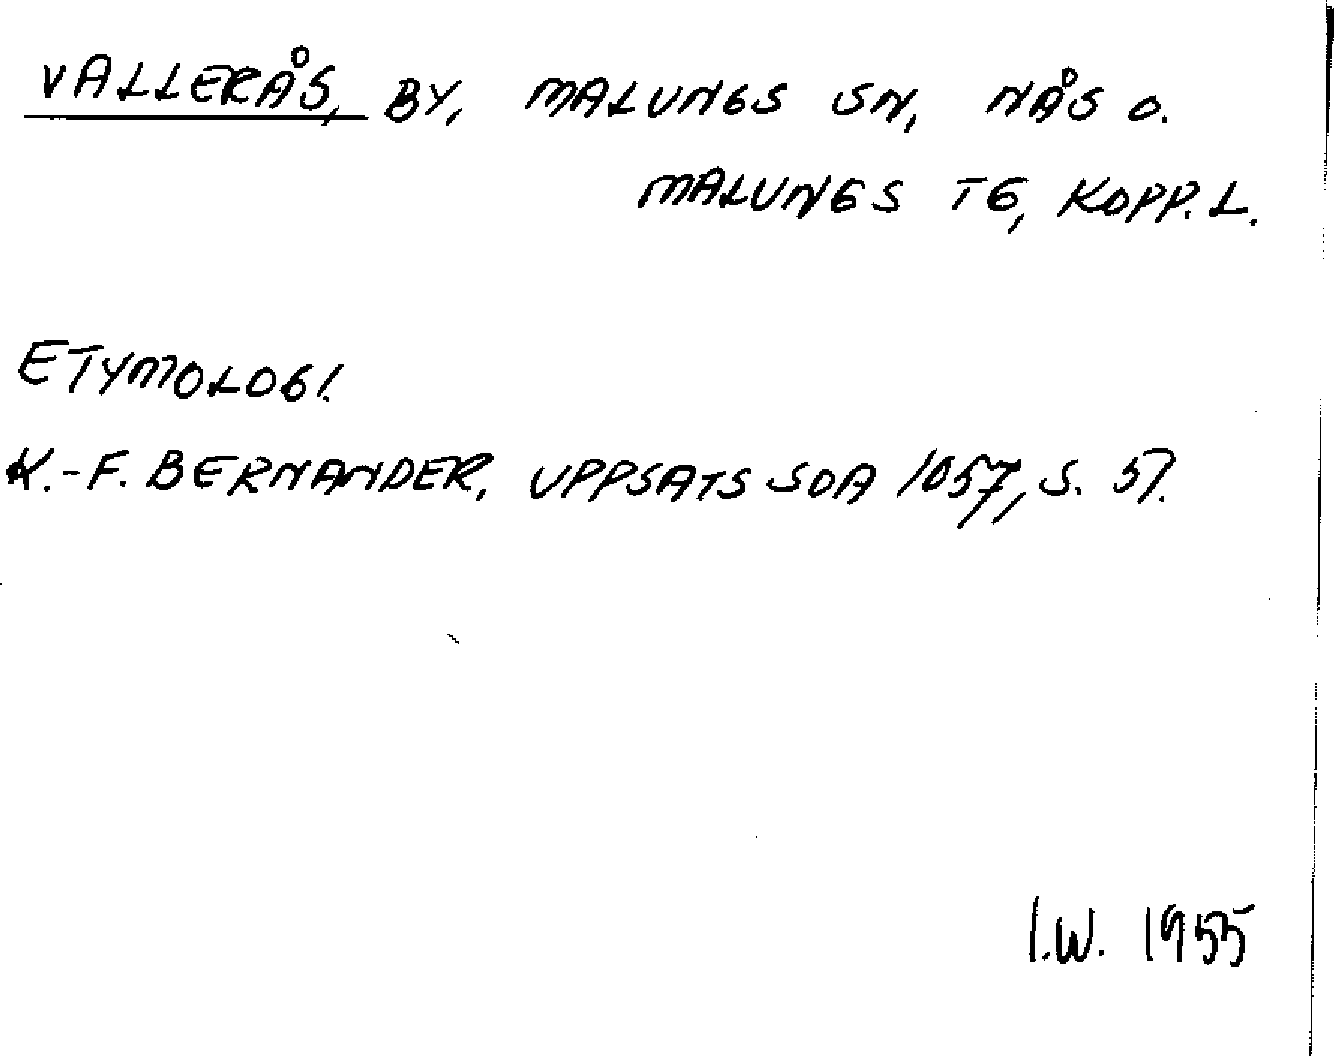 VALLERÅS, BY, MALUNGS SN, NÅS O.
MALUNGS TG, KOPP. L.
ETYMOLOGI.
K.-F. BERNANDER, UPPSATS SOA 1057, S. 57.
I.W. 1955